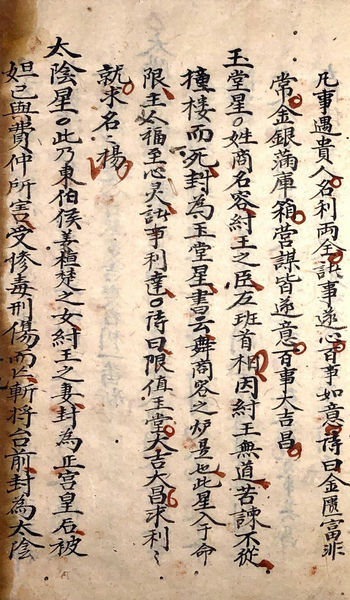 凡事遇貴人名利兩全訟事遂心百事如意詩曰金匱富非
常金銀滿庫箱营謀皆遂意百事大吉昌
玉堂星姓商名容紂王之臣左班首相因紂王無道苦諫不從
撞楼而死封為玉堂星書云舞商容之炉是也此星入于命
限主公福至心灵訟事利達詩曰限值玉堂大吉大昌求利〻
就求名〻揚
太陰星此乃東伯侯姜植楚之女紂王之妻封為正宫皇后被
妲己與費仲所害受惨毒刑傷而亡斬将台前封為太陰